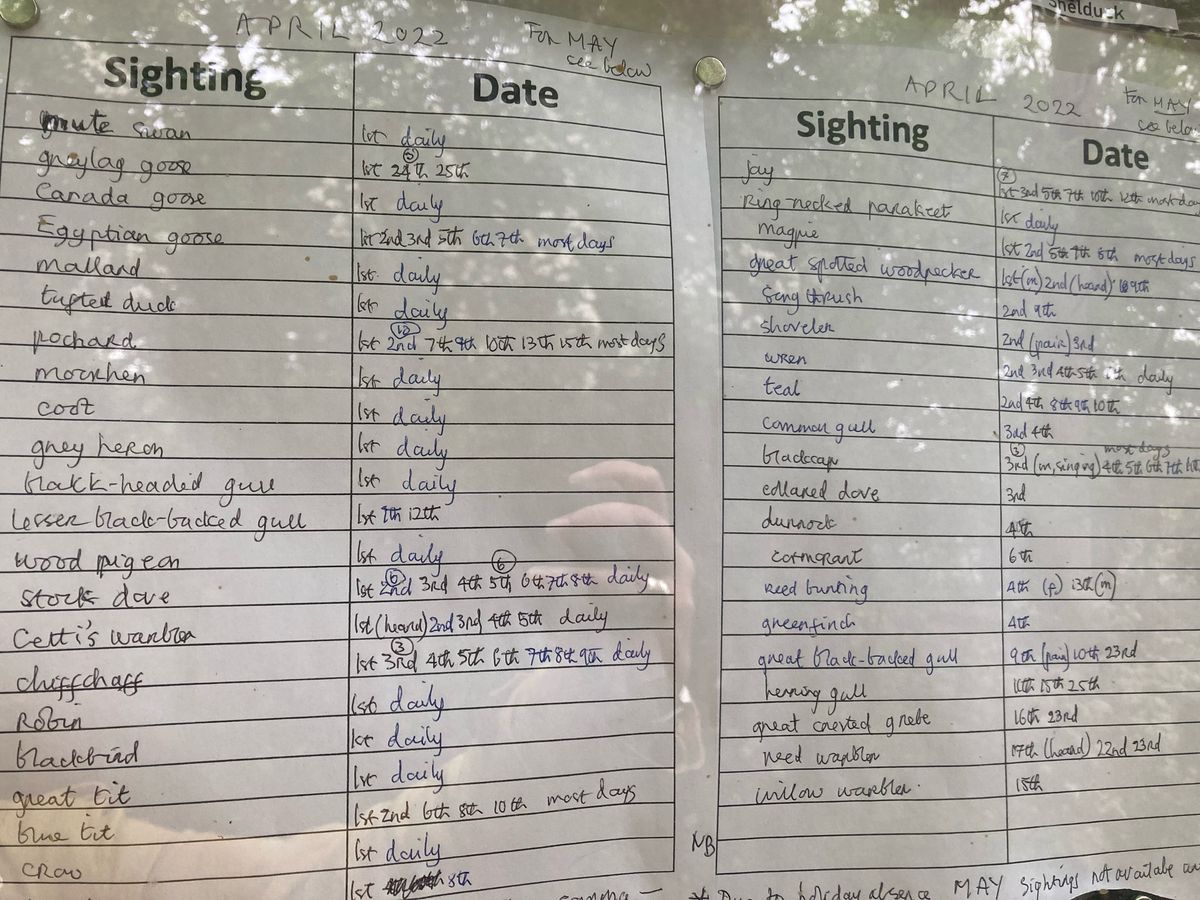 Shelduck
APRIL 2022 For MAY
see below
Sighting Date
mute swan 1st daily
greylag goose 1st 24th (5) 25th
Canada goose 1st daily
Egyptian goose 1st 2nd 3rd 5th 6th 7th most days
mallard 1st daily
tufted duck 1st daily
pochard 1st 2nd 7th 9th 10th 13th 15th most days
moorhen 1st daily
coot 1st daily
grey heron 1st daily
black-headed gull 1st daily
lesser black-backed gull 1st 7th 12th
wood pigeon 1st daily
stock dove 1st 2nd (6) 3rd 4th 5th (6) 6th 7th 8th daily
Cetti's warbler 1st (heard) 2nd 3rd 4th 5th daily
chiffchaff 1st 3rd (3) 4th 5th 6th 7th 8th 9th daily
Robin 1st daily
blackbird 1st daily
great tit 1st daily
blue tit 1st 2nd 6th 8th 10th most days
crow 1st daily
1st 8th
APRIL 2022 For MAY
see below
Sighting Date
jay 1st 3rd 5th 7th 10th 12th most day
Ring-necked parakeet 1st daily
magpie 1st 2nd 5th 7th 8th most days
great spotted woodpecker 1st (m) 2nd (heard) 9th
Song thrush 2nd 9th
shoveler 2nd (pair) 3rd
wren 2nd 3rd 4th 5th daily
teal 2nd 4th 8th 9th 10th
common gull 3rd 4th
most days
blackcap 3rd (m, singing) 4th 5th 6th 7th
collared dove 3rd
dunnock 4th
cormorant 6th
reed bunting 4th (f) 13th (m)
greenfinch 4th
great black-backed gull 9th (pair) 10th 23rd
herring gull 15th 25th
great crested grebe 16th 23rd
reed warbler 17th (heard) 22nd 23rd
willow warbler 18th
NB
* Due to holiday absence MAY sightings not available